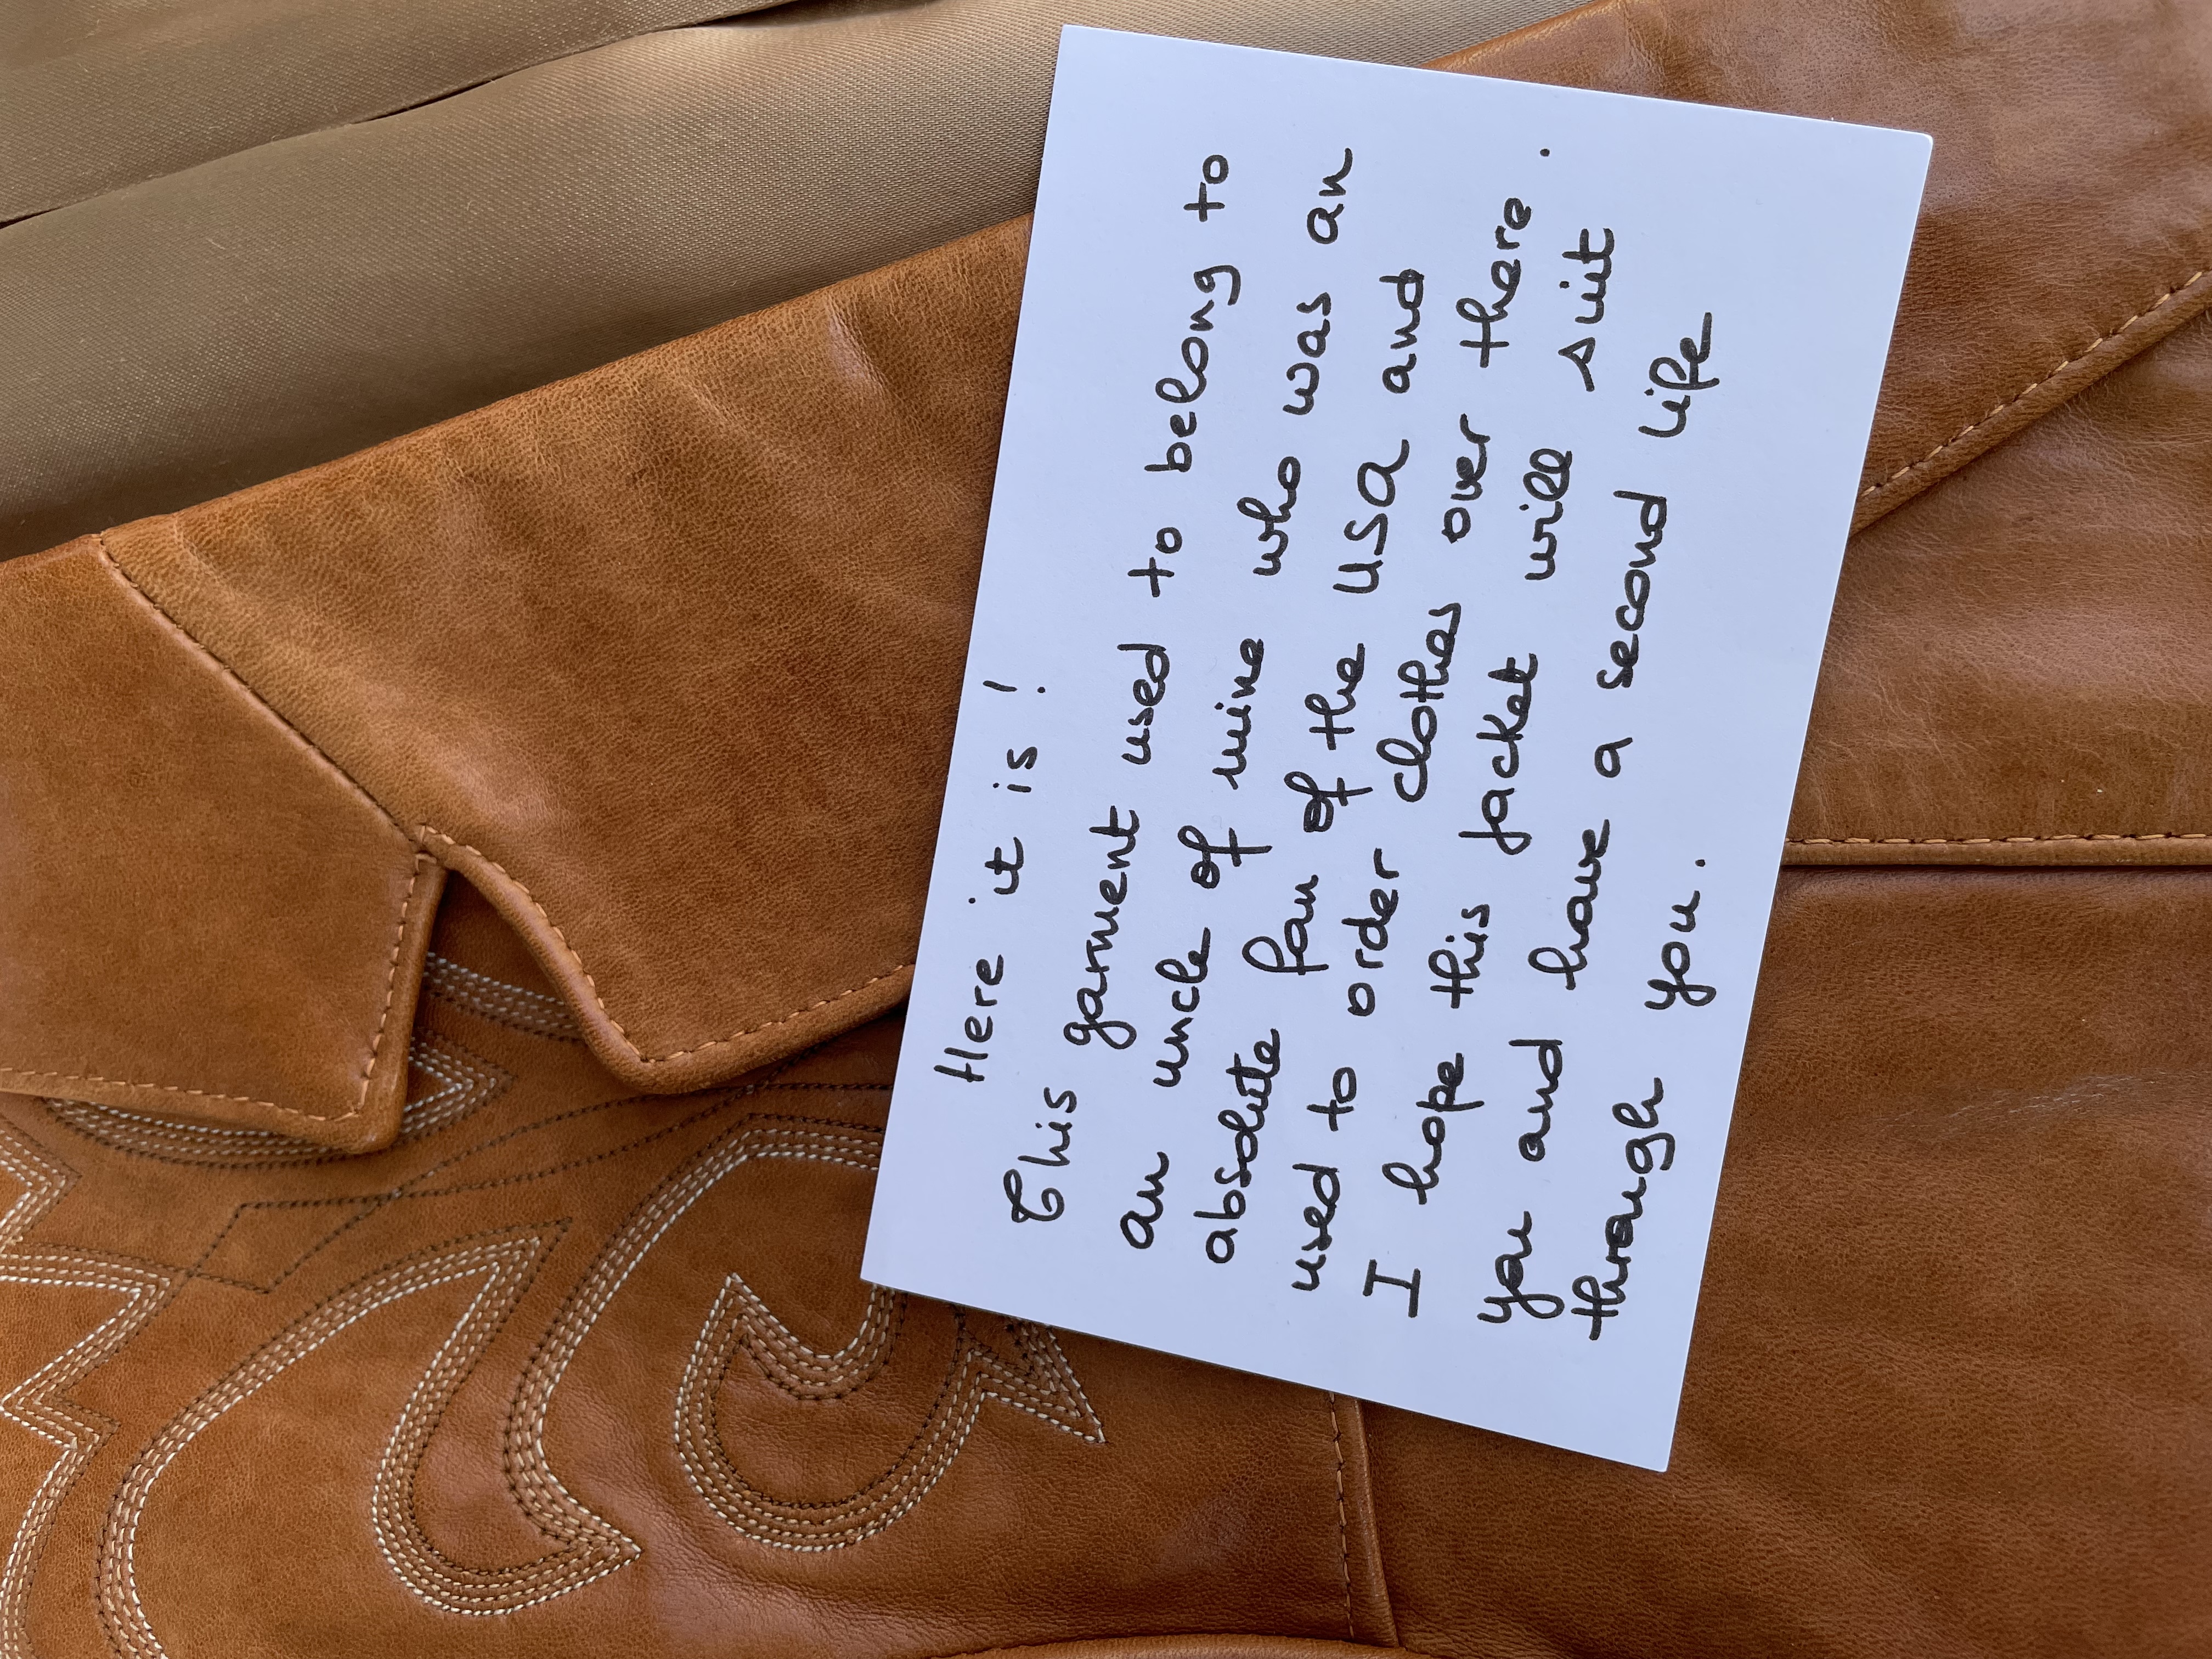 Here it is !
This garment used to belong to
an uncle of mine who was an
absolute fan of the USA and
used to order clothes over there .
I hope this jacket will suit
you and have a second life
through you .